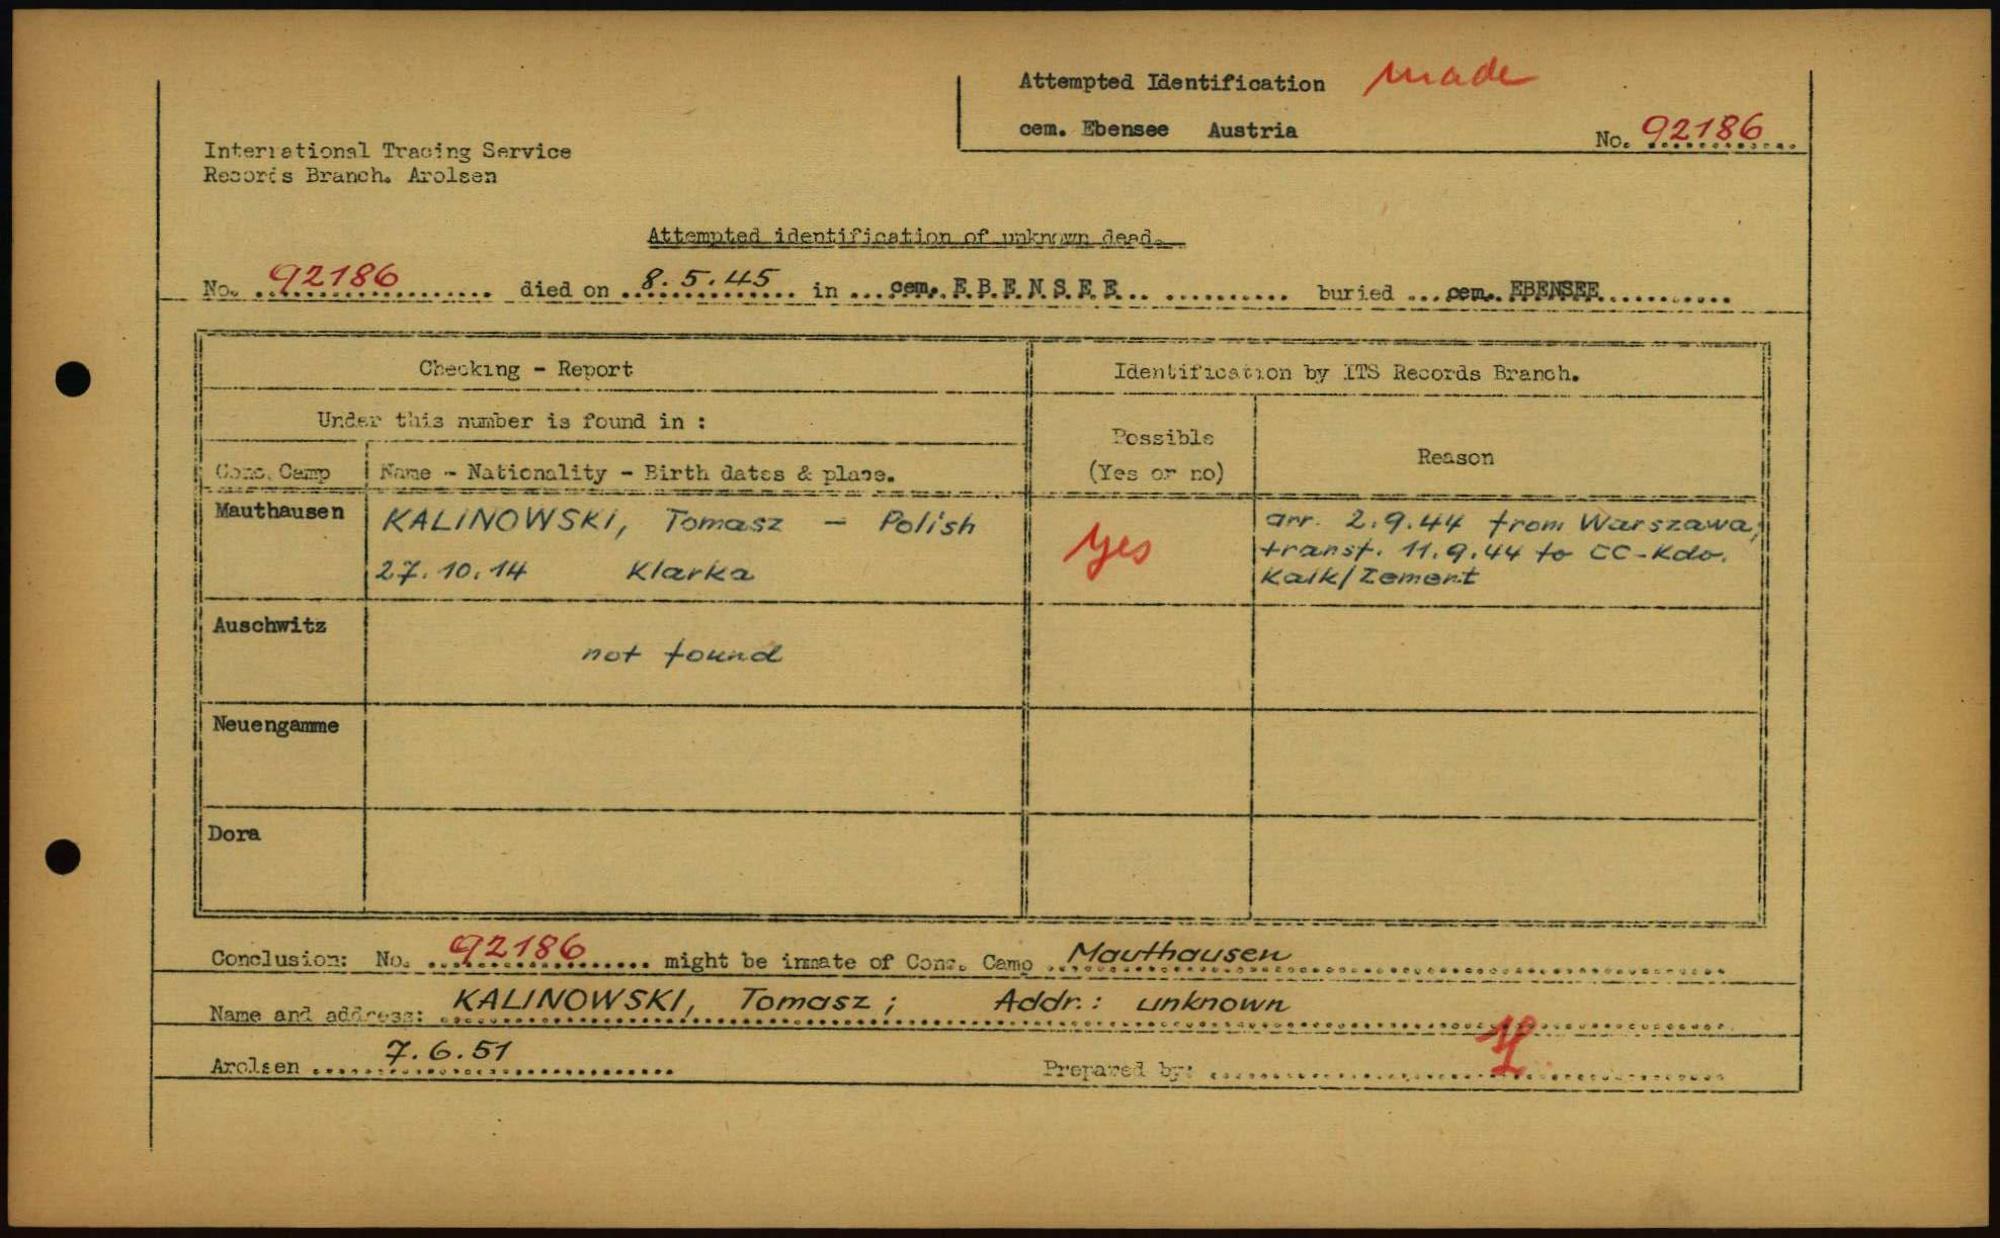 Attempted Identification made
cem. Ebensee Austria No. 92186
International Tracing Service
Records Branch. Arolsen
Attempted identification of unknown dead.
No. 92186 died on 8.5.45 in cem. EBENSEE buried cem. EBENSEE
Checking - Report
Identification by ITS Records Branch.
Under this number is found in :
Possible
(Yes or no)
Reason
Conc. Camp Name - Nationality - Birth dates & place.
Mauthausen
KALINOWSKI, Tomasz - Polish
27.10.14 Klarka
yes
arr. 2.9.44 from Warszawa,
transf. 11.9.44 to CC-Kdo.
Kalk/Zement
Auschwitz
not found
Neuengamme
Dora
Conclusion: No. 92186 might be inmate of Conc. Camp Mauthausen
Name and address: KALINOWSKI, Tomasz; Addr.: unknown
Arolsen 7.6.51 Prepared by: